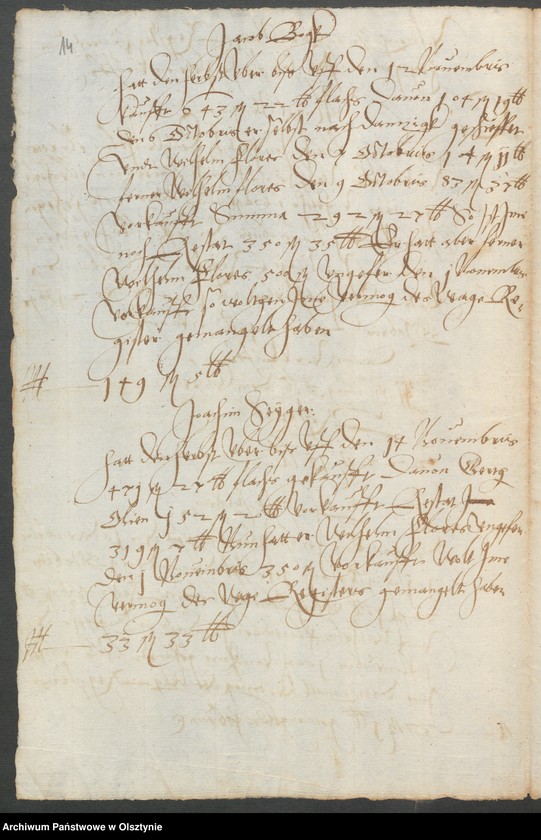 14
Jacob Bope
hatt den herbst vber biss vff den 12 Nouembris
kaufft 643 m 22 lb flachs dauon 104 m 19 lb
den 6 Octobris er selbst nach Danzigk geschickt
Vnd Wilhelm Flores den 7 Octobris 104 m 11 lb
ferner Wilhelm flores den 9 Octobris 83 m 37 lb
vorkaufft Summa 292 m 27 lb So ist Ime
noch Restat 350 m 35 lb Er hatt aber ferner
Wilhelm Flores 500 m vngefer den 1 Nouember
vorkaufft so wolgen Ime vermog des Wage Re-
gister gemangelt haben
149 m 5 lb
Joachim Segger:
hatt den herbst vber biss vff den 14 Nouembris
471 m 27 lb flachs gekaufft dauon Georg
Olien 152 m 20 lb vorkaufft Restat
319 m 7 lb Nun hatt er Wilhelm Flores vngefer
den 1 Nouembris 350 m vorkaufft wolt Ime
vermog des Wage Registers gemangelt haben
33 m 33 lb
Archiwum Państwowe w Olsztynie